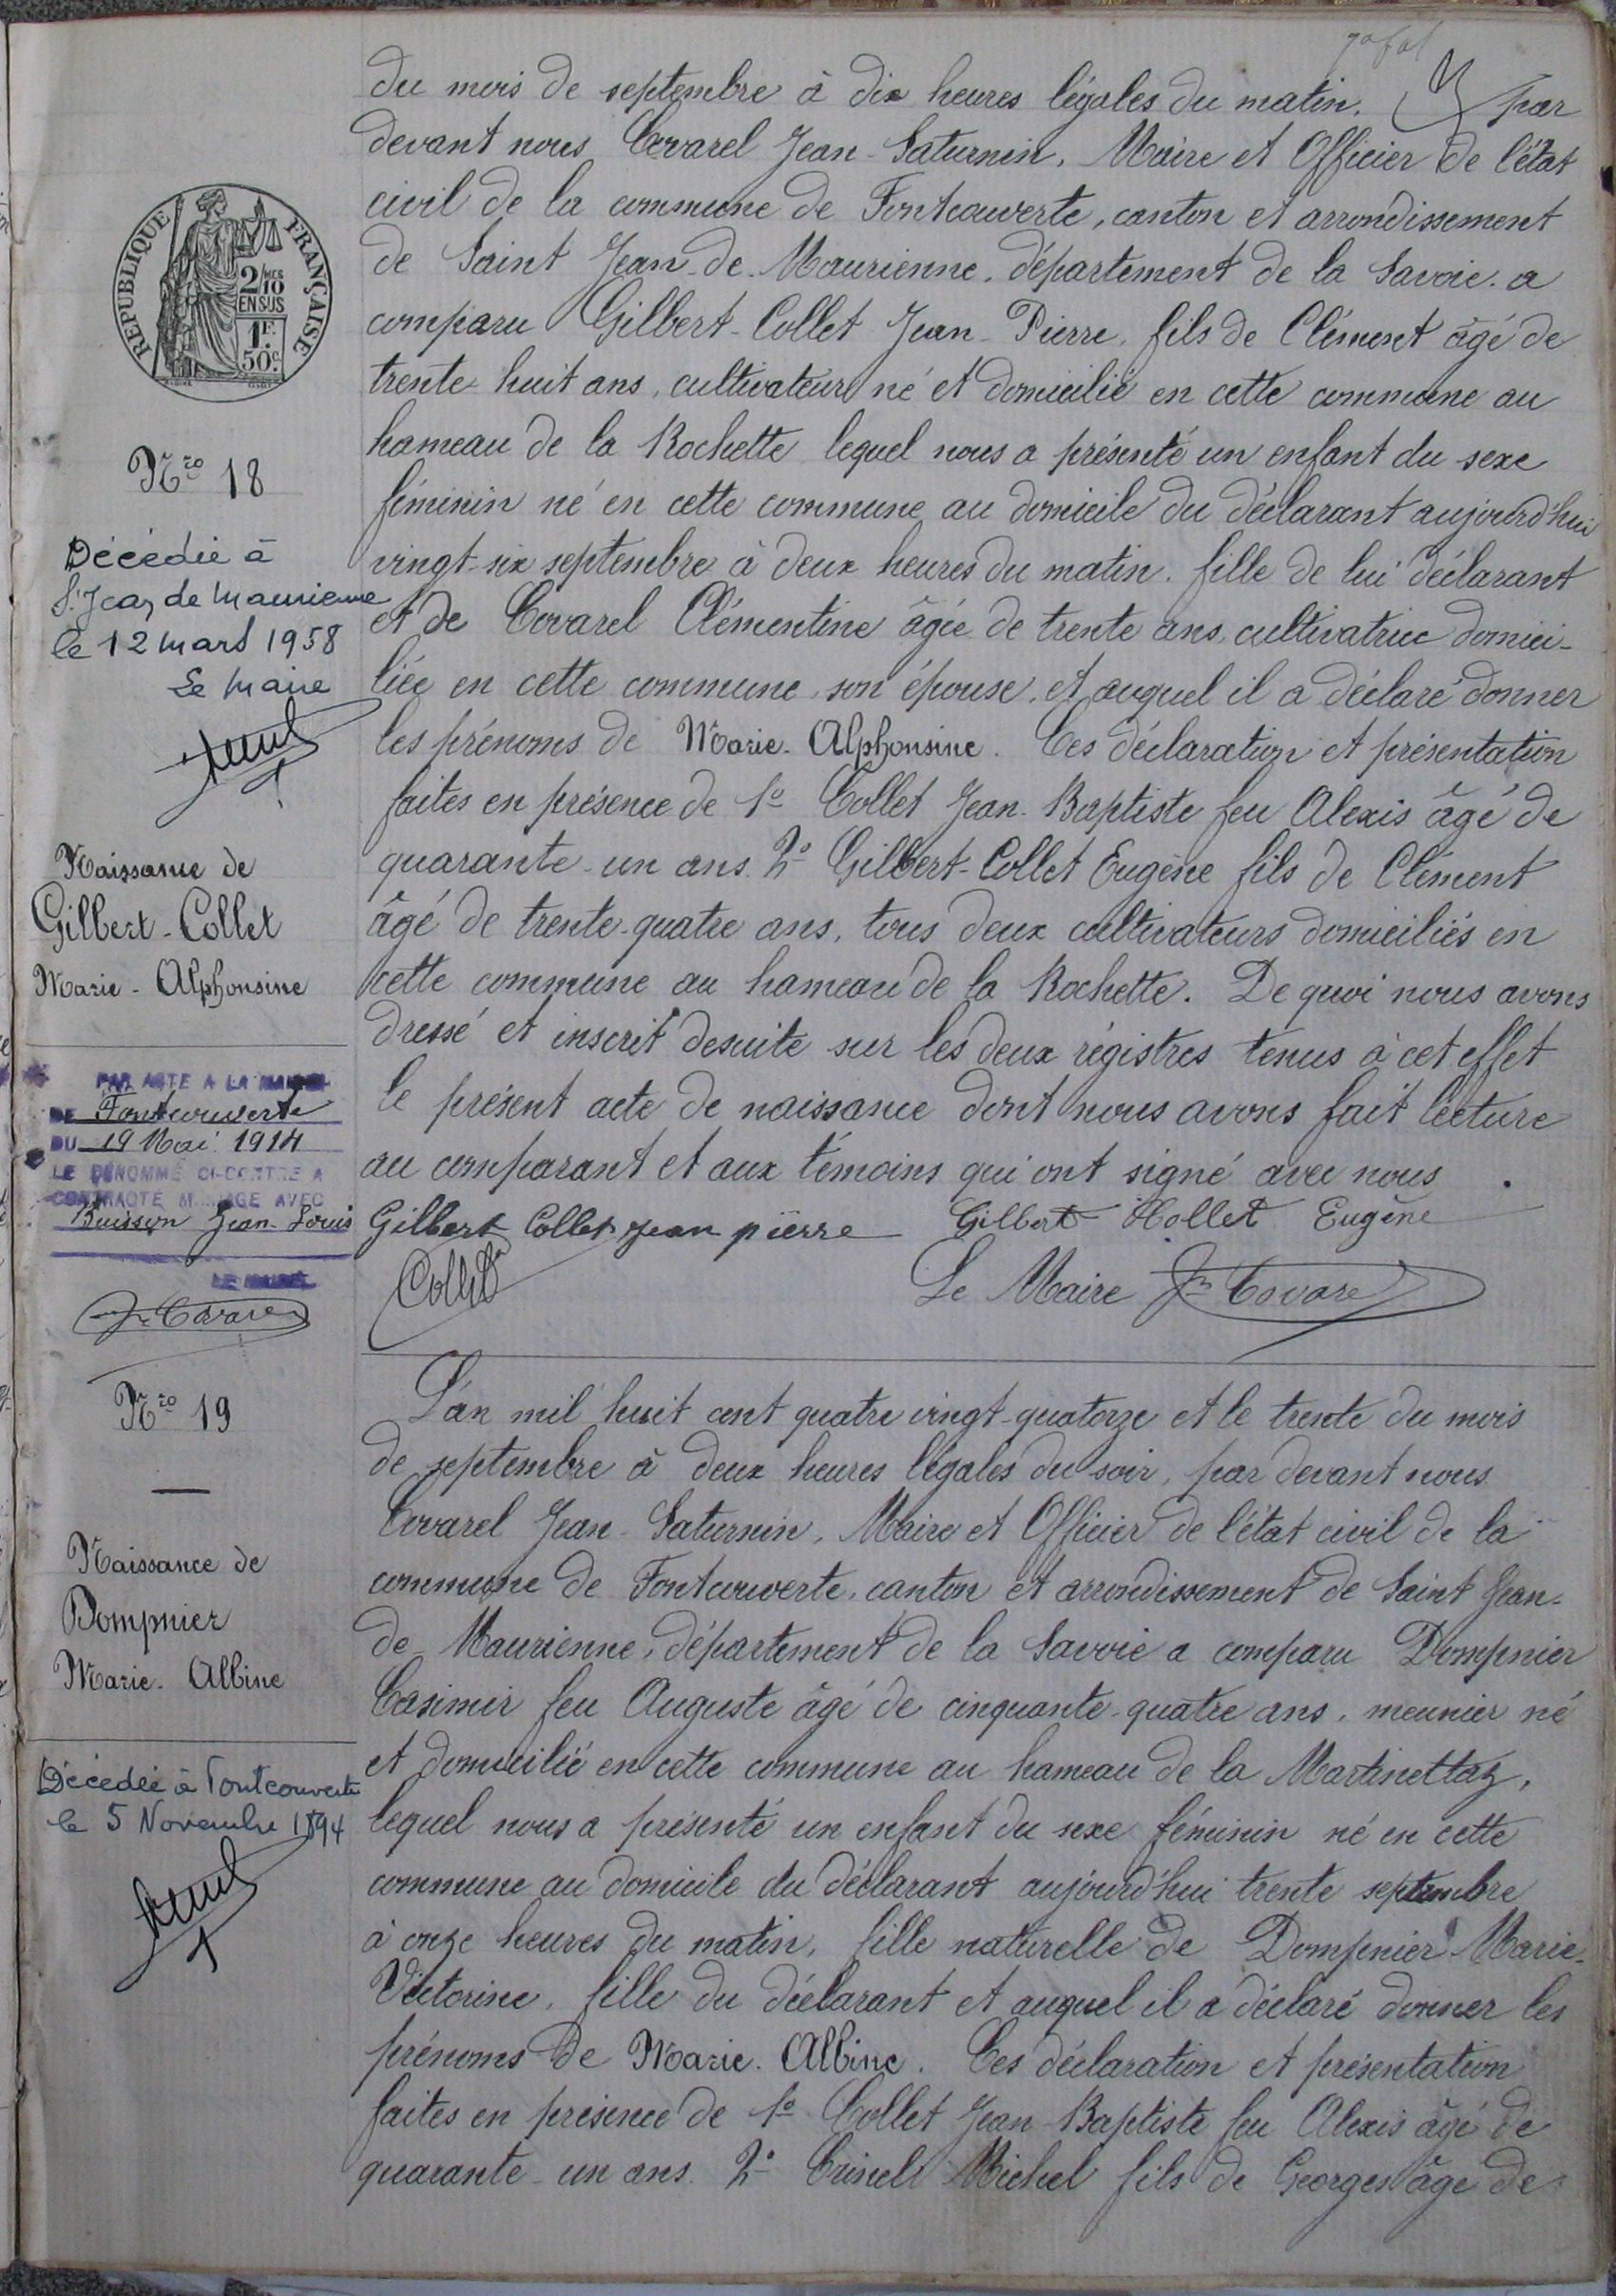 du mois de septembre à dix heures légales du matin. par
devant nous Covarel Jean-Saturnin, Maire et Officier de l'état
civil de la commune de Fontcouverte, canton et arrondissement
de Saint Jean-de-Maurienne, département de la Savoie. a
comparu Gilbert-Collet Jean-Pierre, fils de Clément âgé de
trente huit ans, cultivateur né et domicilié en cette commune au
hameau de la Rochette lequel nous a présenté un enfant du sexe
féminin né en cette commune au domicile du déclarant aujourd'hui
vingt-six septembre à deux heures du matin. fille de lui déclarant
et de Covarel Clémentine âgée de trente ans, cultivatrice domici-
liée en cette commune, son épouse, et auquel il a déclaré donner
les prénoms de Marie-Alphonsine. Ces déclaration et présentation
faites en présence de 1º Collet Jean-Baptiste feu Alexis âgé de
quarante-un ans. 2º Gilbert-Collet Eugène fils de Clément
âgé de trente-quatre ans, tous deux cultivateurs domiciliés en
cette commune au hameau de la Rochette. De quoi nous avons
dressé et inscrit desuite sur les deux régistres tenus à cet effet
le présent acte de naissance dont nous avons fait lecture
au comparant et aux témoins qui ont signé avec nous.
Gilbert Collet jean pierre Gilbert Collet Eugène
Collet Le Maire Jn Covarel
REPUBLIQUE FRANÇAISE
2/10 MES
EN SUS
1F.
50c.
Nro 18
Décédée à
St Jean de Maurienne
le 12 mars 1958
Le Maire
Naissance de
Gilbert-Collet
Marie-Alphonsine
PAR ACTE A LA MAIRIE
DE Fontcouverte
DU 19 Mai 1914
LE DÉNOMMÉ CI-CONTRE A
CONTRACTÉ MARIAGE AVEC
Buisson Jean-Louis
LE MAIRE
Jn Covarel
L'an mil huit cent quatre vingt-quatorze et le trente du mois
de septembre à deux heures légales du soir, par devant nous
Covarel Jean-Saturnin, Maire et Officier de l'état civil de la
commune de Fontcouverte, canton et arrondissement de Saint Jean-
de-Maurienne, département de la Savoie a comparu Dompnier
Casimir feu Auguste âgé de cinquante-quatre ans, meunier né
et domicilié en cette commune au hameau de la Martinettaz,
lequel nous a présenté un enfant du sexe féminin né en cette
commune au domicile du déclarant aujourd'hui trente septembre
à onze heures du matin, fille naturelle de Dompnier Marie-
Victorine, fille du déclarant et auquel il a déclaré donner les
prénoms de Marie-Albine. Ces déclaration et présentation
faites en présence de 1º Collet Jean-Baptiste feu Alexis âgé de
quarante-un ans. 2º Michel fils de Georges âgé de
Nro 19
Naissance de
Dompnier
Marie-Albine
Décédée à Fontcouverte
le 5 Novembre 1894